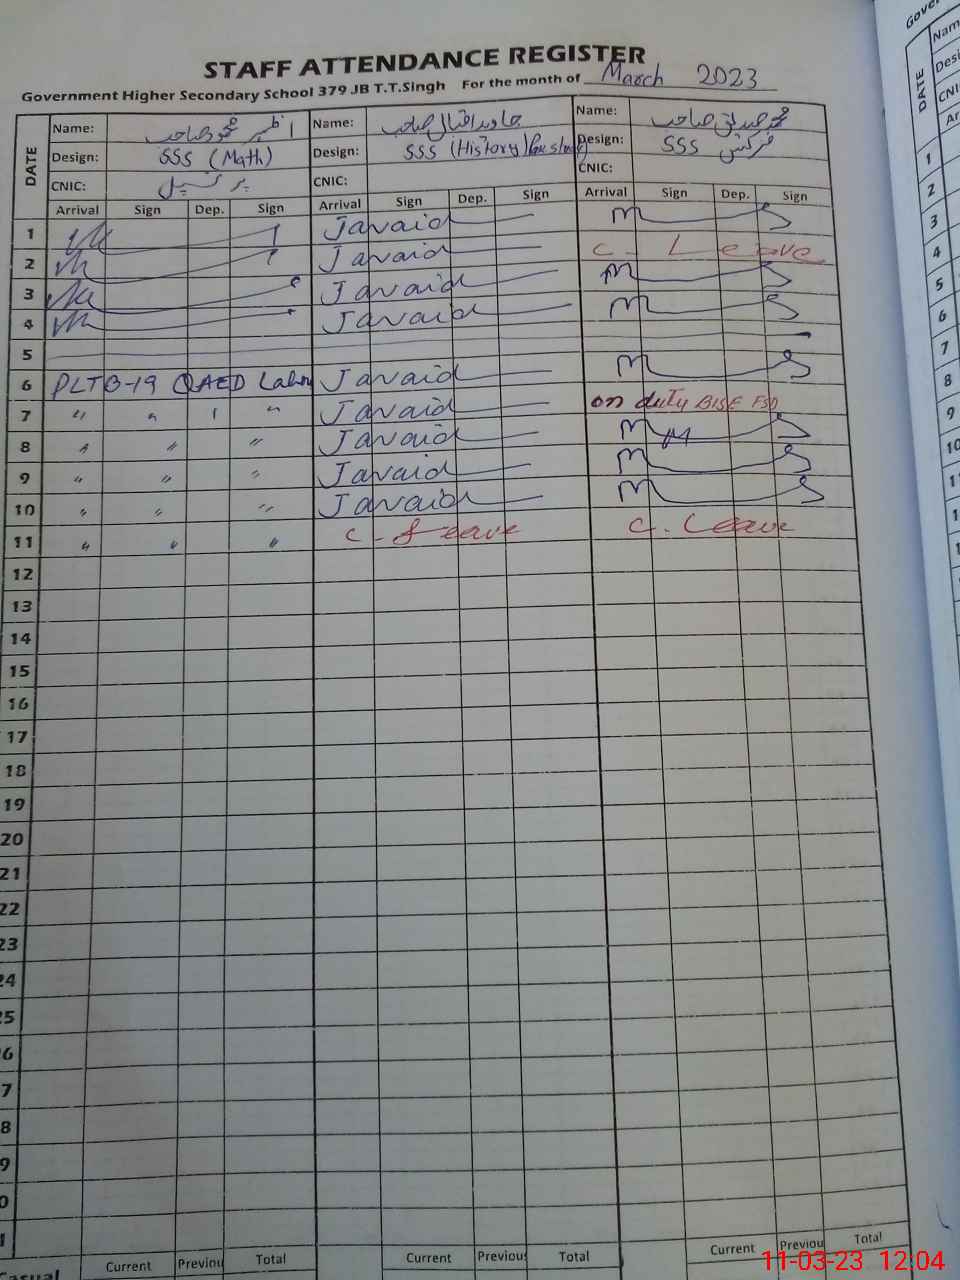 STAFF ATTENDANCE REGISTER
Government Higher Secondary School 379 JB T.T.Singh For the month of March 2023
DATE
Name: اظہر محمود صاحب Name: جاوید اقبال صاحب Name: صاحب
Design: SSS (Math) Design: SSS (History) Design: SSS فزکس
CNIC: پرنسپل CNIC: CNIC:
Arrival Sign Dep. Sign Arrival Sign Dep. Sign Arrival Sign Dep. Sign
1 Javaid
2 Javaid C. Leave
3 Javaid
4 Javaid
5
6 PLTB-19 QAED Lahore Javaid
7 " " " Javaid on duty BISE FSD
8 " " " Javaid
9 " " " Javaid
10 " " " Javaid
11 " " " C. Leave C. Leave
12
13
14
15
16
17
18
19
20
21
22
23
24
25
6
7
8
9
0
1
Current Previou Total Current Previou Total Current Previou Total
Casual
11-03-23 12:04
Gover
DATE
Nam
Desi
CNI
Ar
1
2
3
4
5
6
7
8
9
10
11
1
1